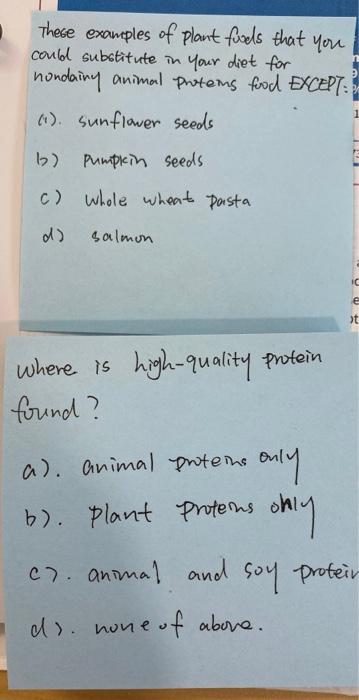 These examples of plant foods that you
could substitute in your diet for
nondairy animal proteins food EXCEPT:
a). sunflower seeds
b) pumpkin seeds
c) whole wheat pasta
d) salmon
where is high-quality protein
found?
a). animal proteins only
b). plant proteins only
c). animal and soy protein
d). none of above.